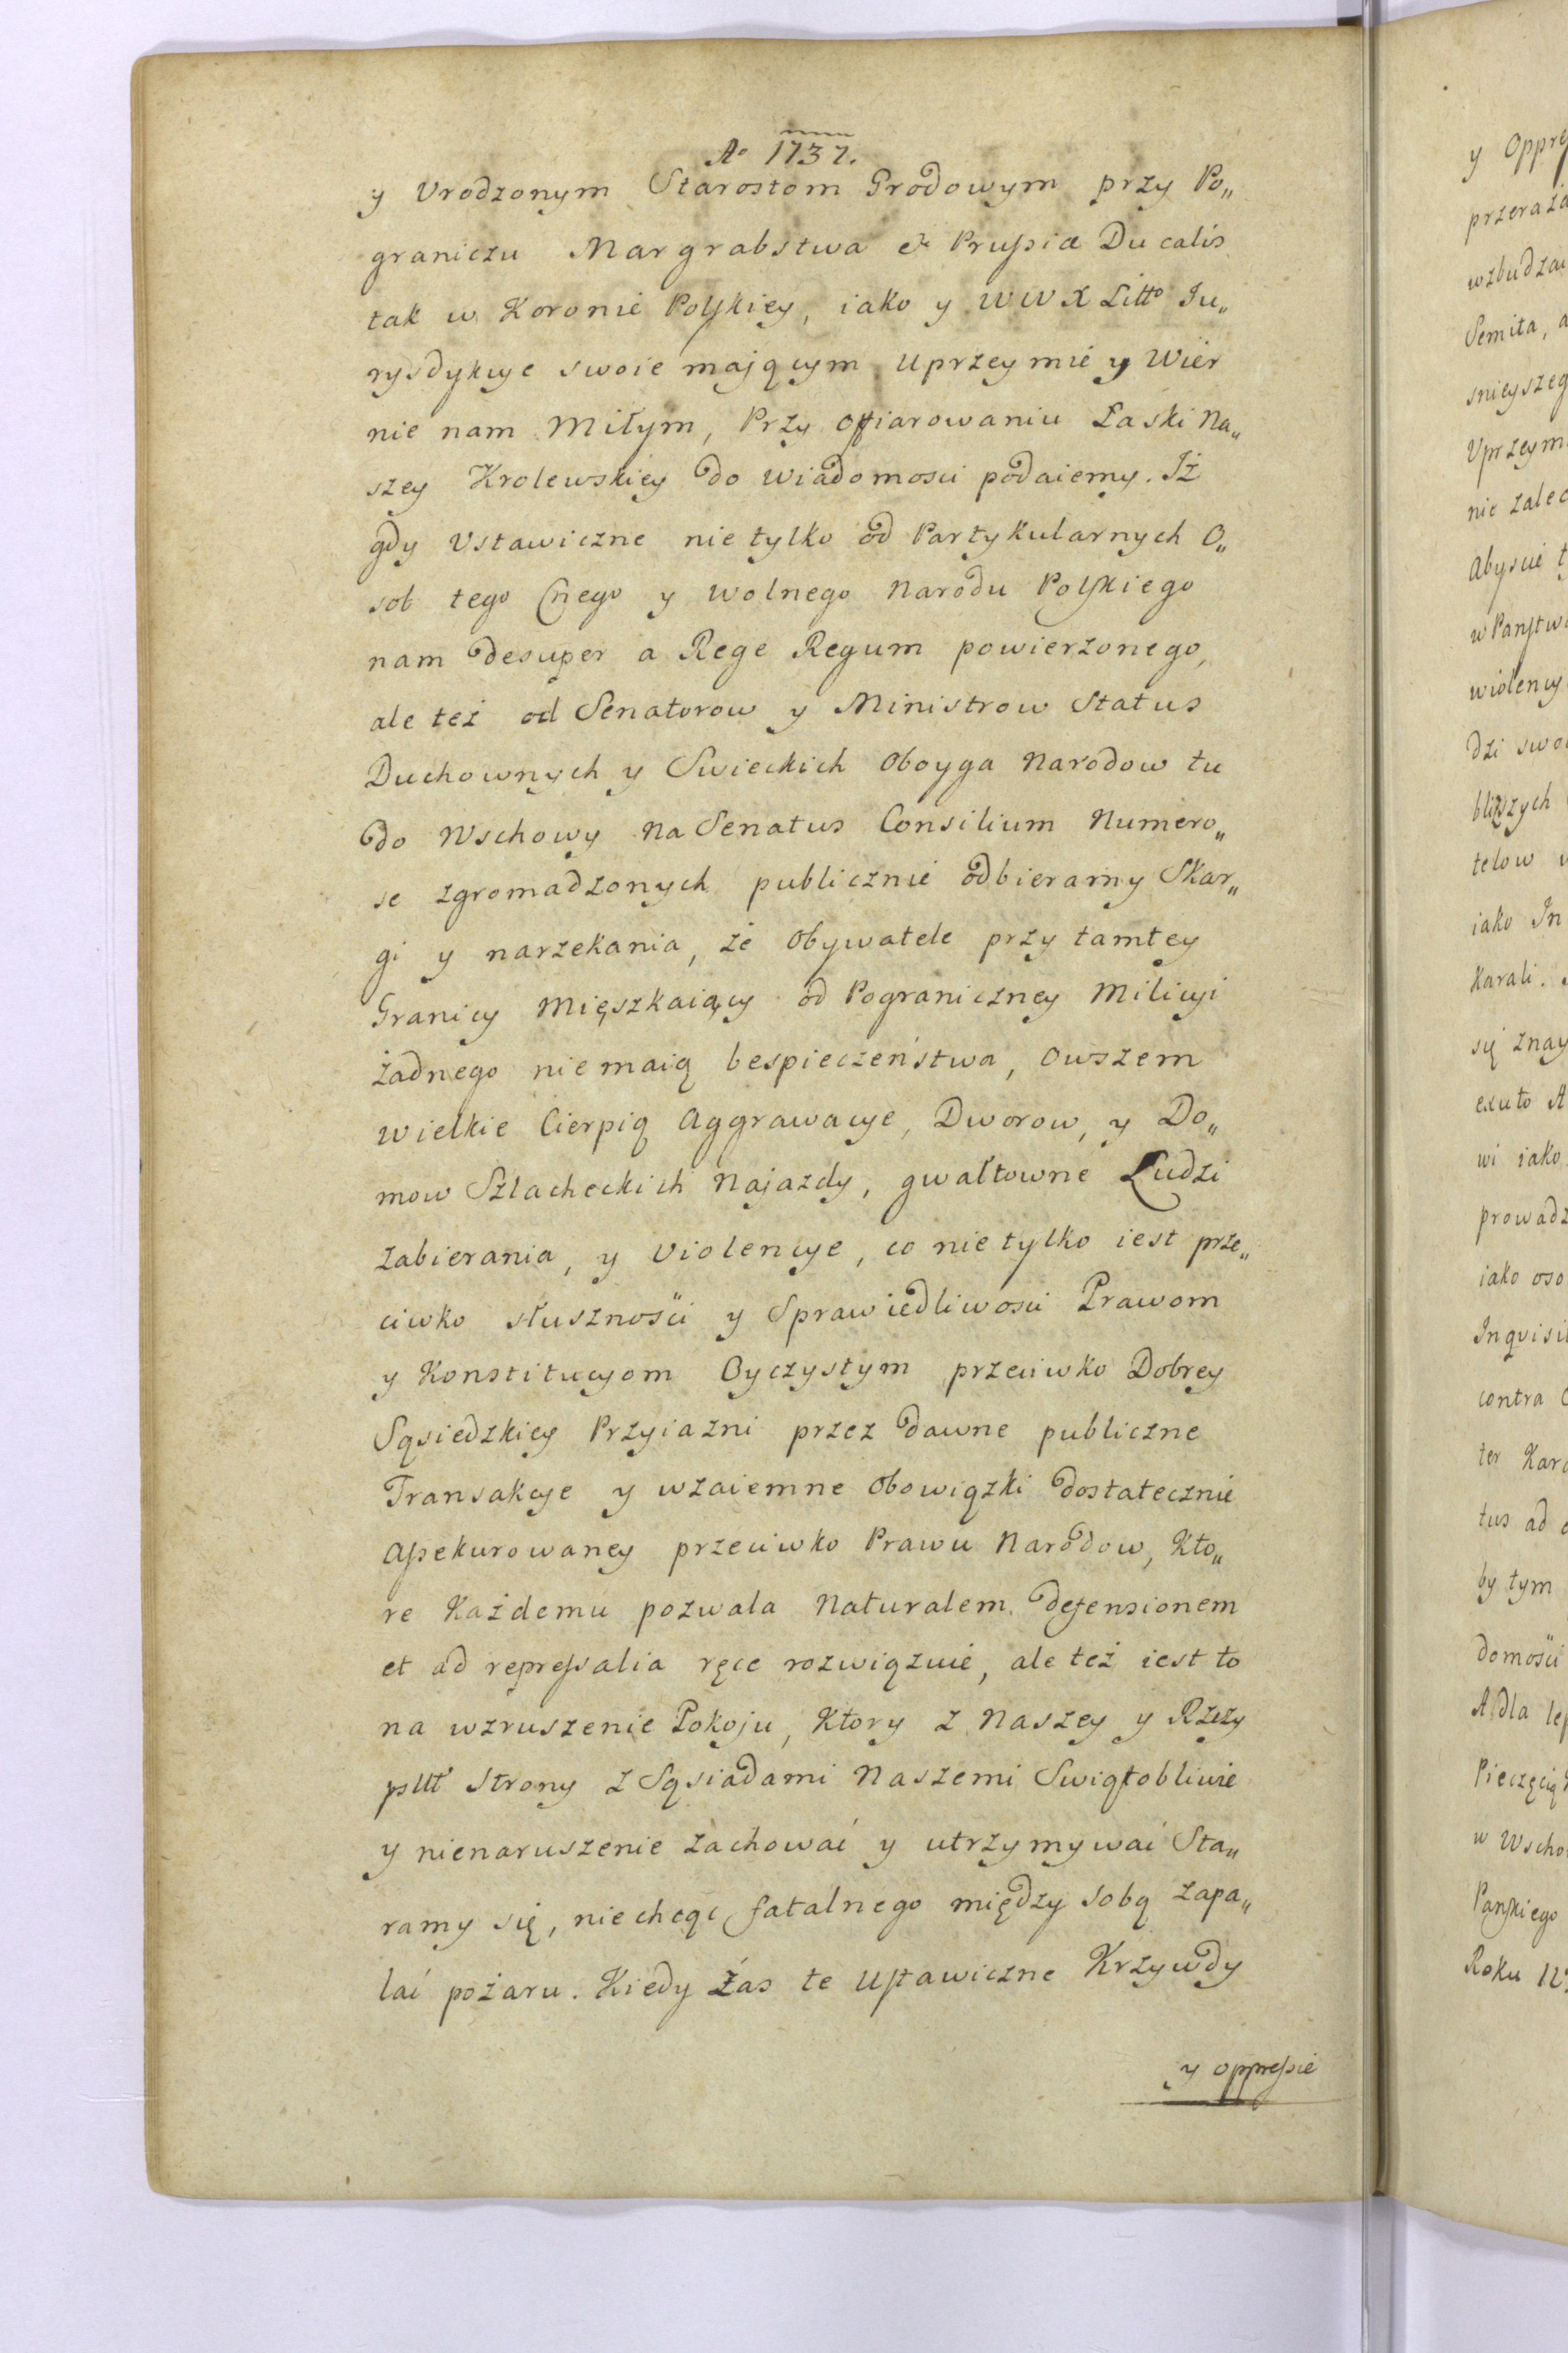 Aº 1737.
y Urodzonym Starostom Grodowym przy Po„
graniczu Margrabstwa & Prusiæ Ducalis
tak w Koronie Polskiey, iako y W W X Litto Iu„
rysdykcye swoie mającym Uprzeymie y Wier
nie nam Miłym, Przy offiarowaniu Łaski Na„
szey Krolewskiey do wiadomosci podaiemy. Iż
gdy Ustawiczne nie tylko od Partykularnych O„
sob tego Cnego y wolnego Narodu Polskiego
nam desuper a Rege Regum powierzonego,
ale też od Senatorow y Ministrow Status
Duchownych y Swieckich Oboyga Narodow tu
do Wschowy na Senatus Consilium Numero„
se zgromadzonych publicznie odbieramy Skar„
gi y narzekania, że Obywatele przy tamtey
Granicy Mięszkaiący od Pograniczney Milicyi
żadnego nie maią bespieczeństwa, Owszem
wielkie Cierpią Aggrawacye, Dworow, y Do„
mow Szlacheckich Najazdy, gwałtowne Ludzi
zabierania, y violencye, co nie tylko iest prze„
ciwko słusznosci y Sprawiedliwosci Prawom
y Konstitucyom Oyczystym przeciwko Dobrey
Sąsiedzkiey Przyiazni przez dawne publiczne
Transakcye y wzaiemne Obowiązki dostatecznie
Assekurowaney przeciwko Prawu Narodow, Kto„
re Każdemu pozwala Naturalem defensionem
et ad repressalia ręce rozwiązuie, ale też iest to
na wzruszenie Pokoju, Ktory z Naszey y Rzezy
pltt Strony z Sąsiadami Naszemi Swiątobliwie
y nienaruszenie zachować y utrzymywać Sta„
ramy się, nie chcąc fatalnego między sobą zapa„
lać pożaru. Kiedy Zas te Ustawiczne Krzywdy
y oppressie
y Oppre
przeraża
wzbudzai
Semita, a
snieyszeg
Uprzeym
nie zalec
Abyscie t
w Panstw
wiolency
dzi swo
bliższych
telow
iako In
Karali.
się znay
exuto A
wi iako
prowadz
iako oso
Inquisi
contra
ter Kar
tus ad
by tym
domości
A dla lep
Pieczęcią
w Wscho
Pańskiego
Roku 17